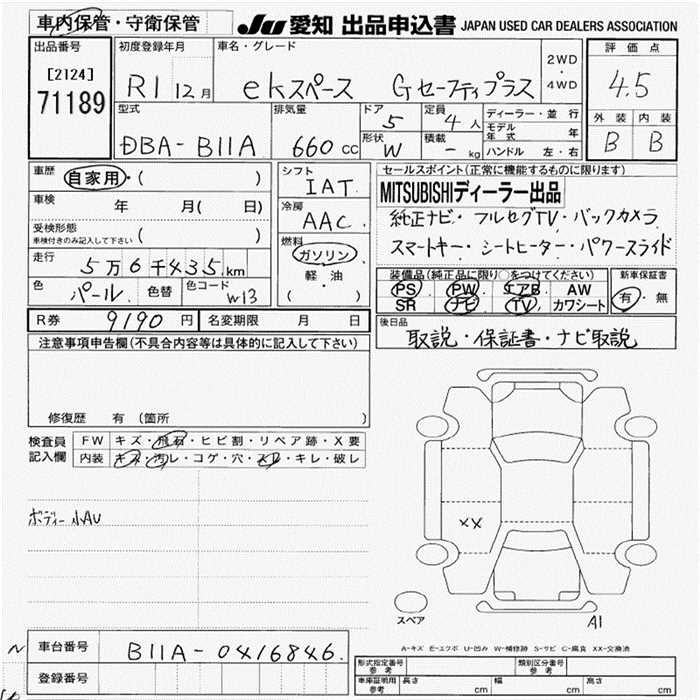 車内保管・守衛保管 JU 愛知 出品申込書 JAPAN USED CAR DEALERS ASSOCIATION
出品番号 初度登録年月 車名・グレード 評価点
[2124] 71189 R1 12月 ekスペース Gセーフティプラス 2WD・4WD 4.5
型式 排気量 ドア 定員 ディーラー・並行 外装 内装
DBA-B11A 660cc 5 4人 モデル年式 年 B B
形状 W 積載 - kg ハンドル 左・右
車歴 自家用・( ) シフト IAT セールスポイント(正常に機能するものに限ります)
車検 年 月( 日) 冷房 AAC MITSUBISHIディーラー出品
受検形態 車検付きのみ記入して下さい ( ) 純正ナビ・フルセグTV・バックカメラ
燃料 ガソリン スマートキー・シートヒーター・パワースライド
走行 5万6千435km 軽・油 ( ) 装備品(純正品に限り○をつけてください) 新車保証書
色 パール 色替 色コード W13 PS PW エアB AW 有・無
SR ナビ TV カワシート
R券 9190円 名変期限 月 日 後日品
取説・保証書・ナビ取説
注意事項申告欄(不具合内容等は具体的に記入して下さい)
修復歴 有 (箇所 )
検査員記入欄 FW キズ・飛石・ヒビ割・リペア跡・X要
内装 キズ・汚レ・コゲ・穴・スレ・キレ・破レ
ボディー小AU
XX
スペア A1
A-キズ E-エクボ U-凹み W-補修跡 S-サビ C-腐食 XX-交換済
車台番号 B11A-0416846
登録番号
形式指定番号 参考 類別区分番号 参考
車庫証明用 参考 長さ cm 幅 cm 高さ cm